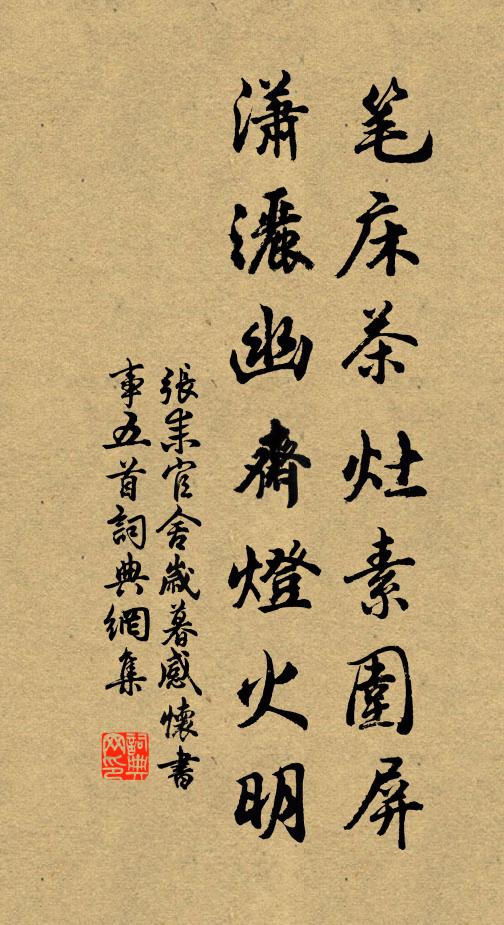 笔床茶灶素圍屏
瀟灑幽齋燈火明
張耒官舍歲暮感懷書
事五首詞典網集
詞典
网印